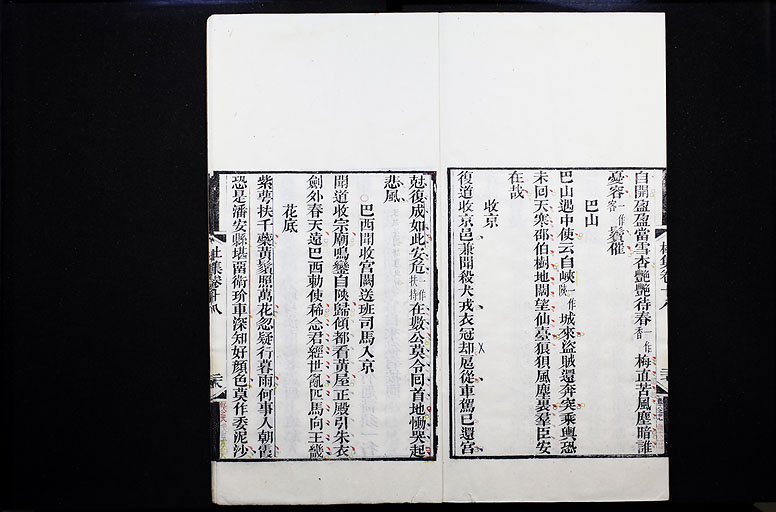 白開盈盈當雪杏艷艷待春一作香梅直苦風塵暗誰
憂容一作客鬢催
巴山
巴山遇中使云自峽一作陝城來盜賊還奔突乘輿恐
未回天寒邵伯樹地闊望仙臺狼狽風塵裏羣臣安
在哉
收京
復道收京邑兼聞殺犬戎衣冠却扈從車駕已還宮
尅復成如此安危一作扶持在數公莫令回首地慟哭起
悲風
巴西聞收宮闕送班司馬入京
聞道收宗廟鳴鑾自陝歸傾都看黃屋正殿引朱衣
劍外春天遠巴西勅使稀念君經世亂匹馬向王畿
花底
紫萼扶千蘂黃鬚照萬花忽疑行暮雨何事入朝霞
恐是潘安縣堪留衛玠車深知好顏色莫作委泥沙
杜集卷十八